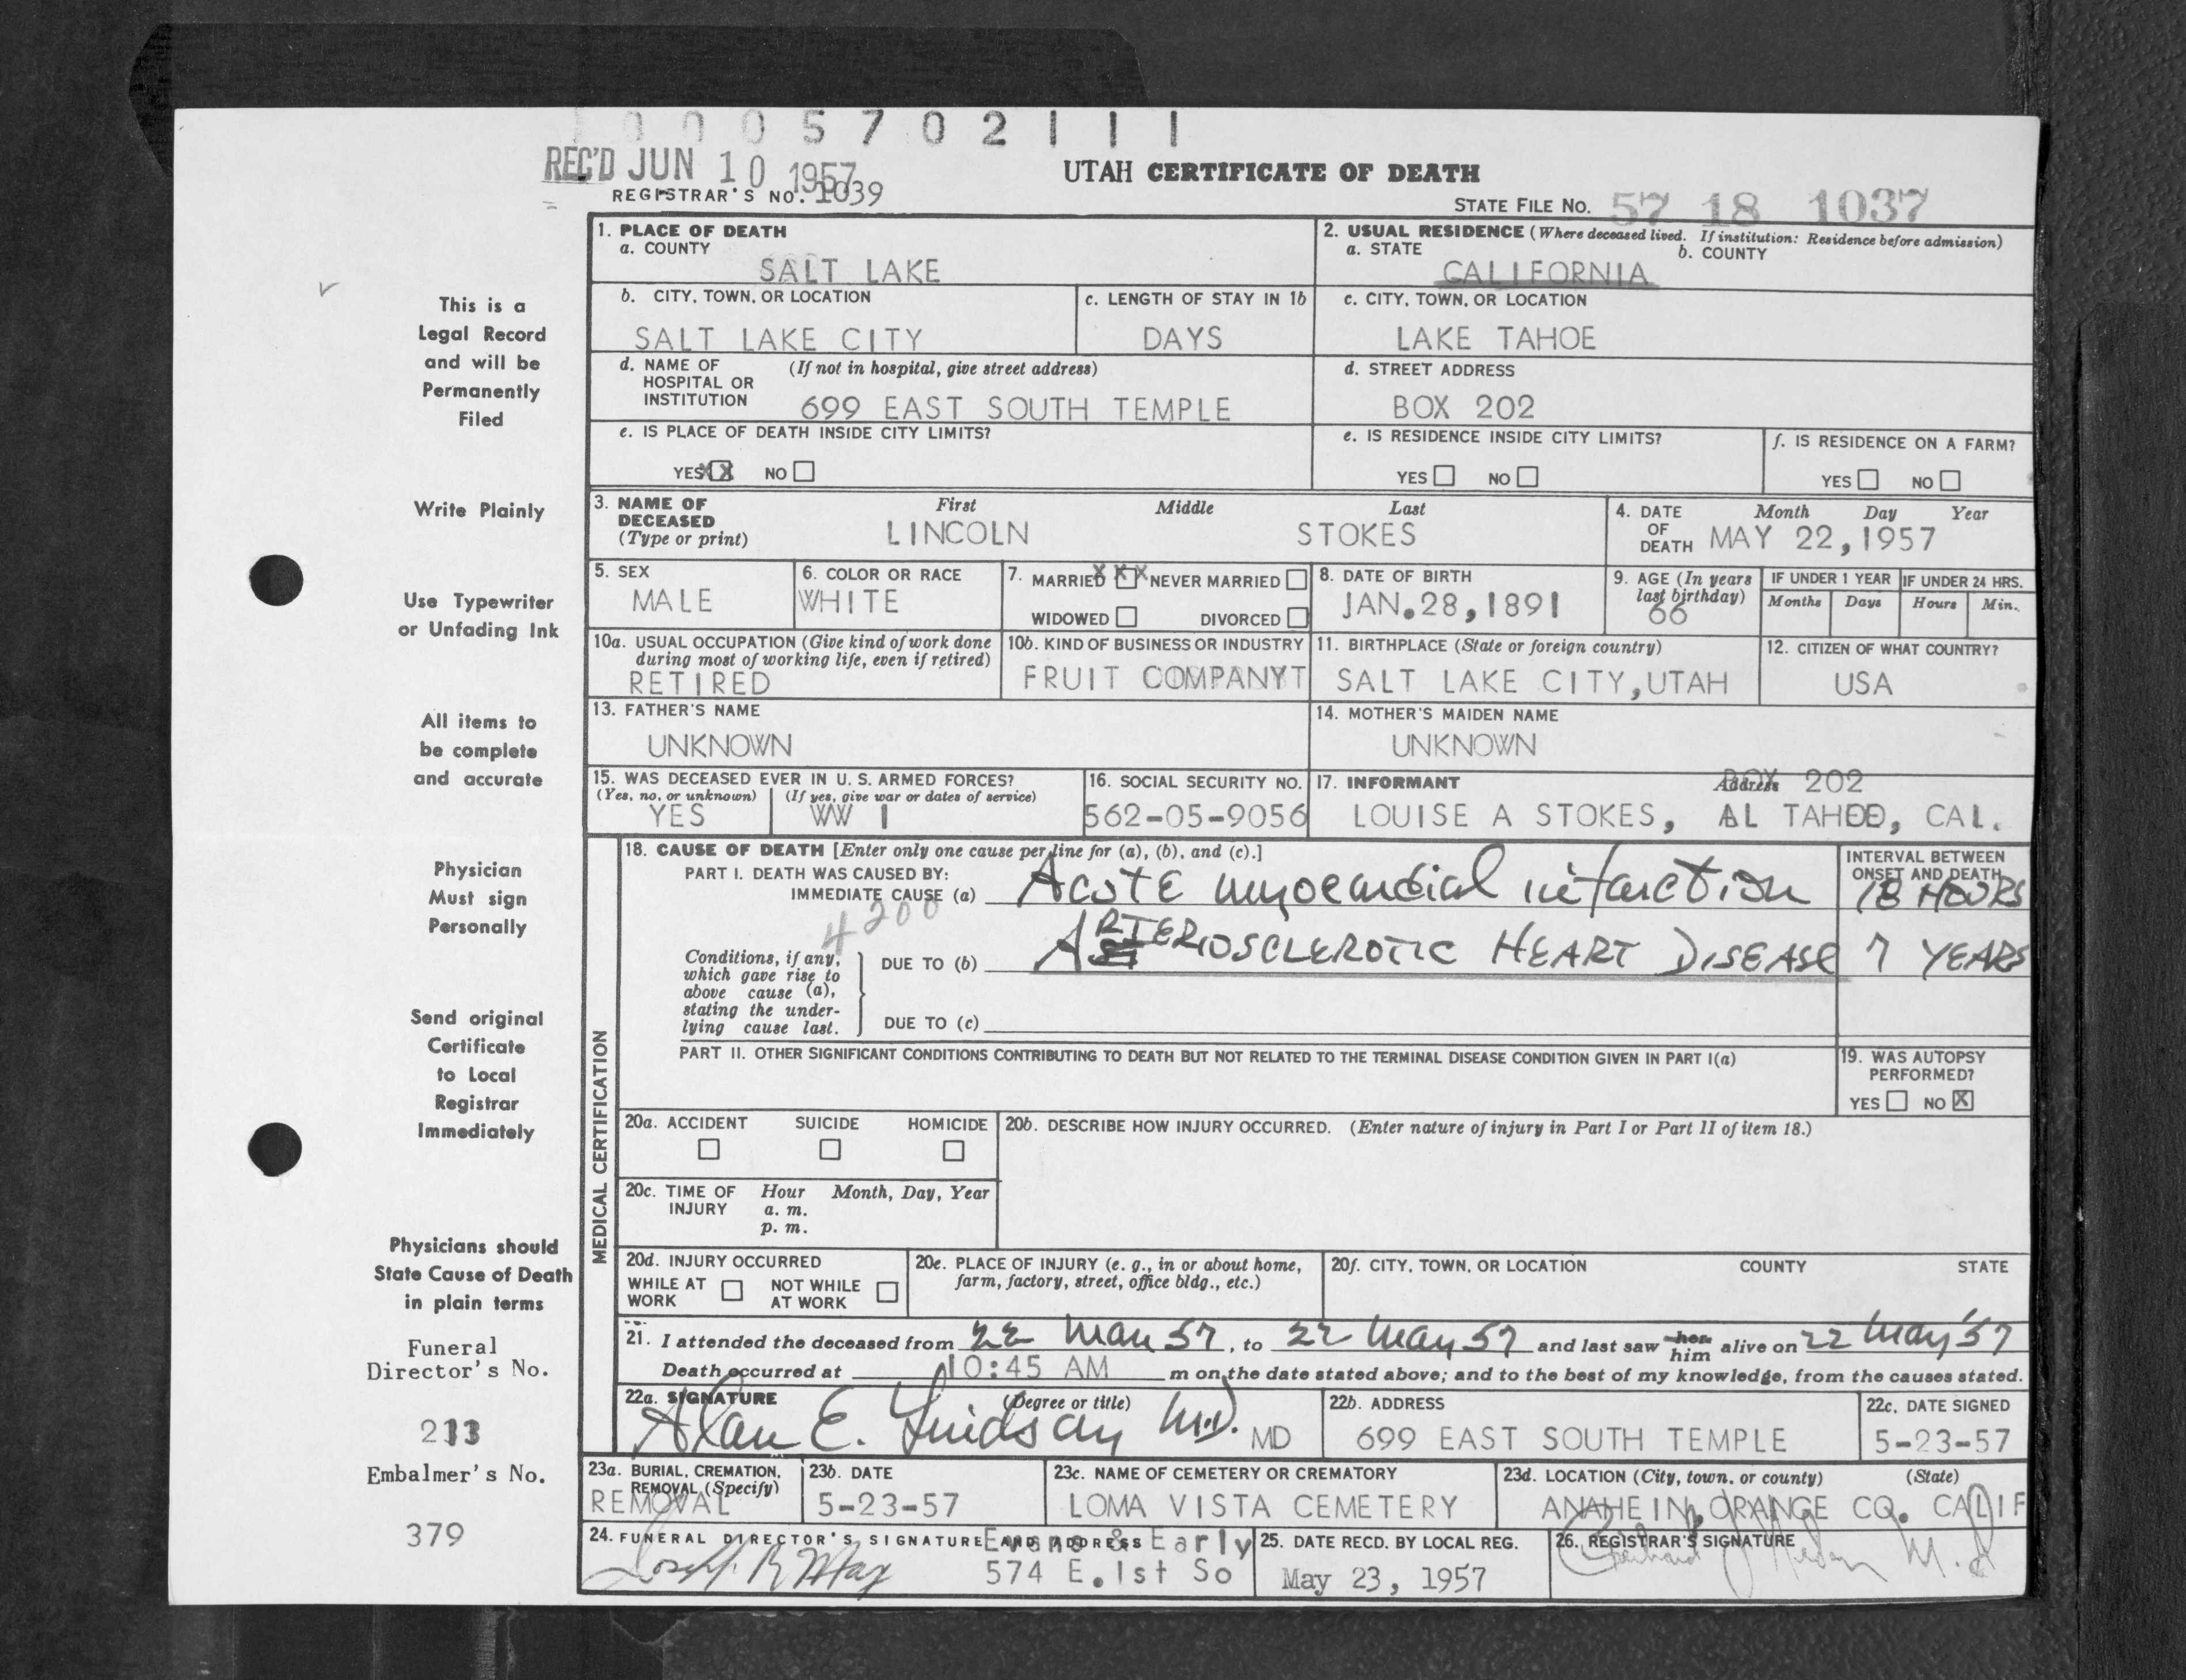 0 0 0 5 7 0 2 1 1 1
REC'D JUN 10 1957
REGISTRAR'S NO. 1039
UTAH CERTIFICATE OF DEATH
STATE FILE NO. 57 18 1037
This is a
Legal Record
and will be
Permanently
Filed
Write Plainly
Use Typewriter
or Unfading Ink
All items to
be complete
and accurate
Physician
Must sign
Personally
Send original
Certificate
to Local
Registrar
Immediately
Physicians should
State Cause of Death
in plain terms
Funeral
Director's No.
213
Embalmer's No.
379
1. PLACE OF DEATH
a. COUNTY
SALT LAKE
2. USUAL RESIDENCE (Where deceased lived. If institution: Residence before admission)
a. STATE b. COUNTY
CALIFORNIA
b. CITY, TOWN, OR LOCATION
SALT LAKE CITY
c. LENGTH OF STAY IN 1b
DAYS
c. CITY, TOWN, OR LOCATION
LAKE TAHOE
d. NAME OF (If not in hospital, give street address)
HOSPITAL OR
INSTITUTION 699 EAST SOUTH TEMPLE
d. STREET ADDRESS
BOX 202
e. IS PLACE OF DEATH INSIDE CITY LIMITS?
YES XX NO
e. IS RESIDENCE INSIDE CITY LIMITS?
YES NO
f. IS RESIDENCE ON A FARM?
YES NO
3. NAME OF First Middle Last
DECEASED
(Type or print) LINCOLN STOKES
4. DATE Month Day Year
OF
DEATH MAY 22,1957
5. SEX
MALE
6. COLOR OR RACE
WHITE
7. MARRIED XXX NEVER MARRIED
WIDOWED DIVORCED
8. DATE OF BIRTH
JAN.28,1891
9. AGE (In years
last birthday)
66
IF UNDER 1 YEAR IF UNDER 24 HRS.
Months Days Hours Min.
10a. USUAL OCCUPATION (Give kind of work done
during most of working life, even if retired)
RETIRED
10b. KIND OF BUSINESS OR INDUSTRY
FRUIT COMPANYT
11. BIRTHPLACE (State or foreign country)
SALT LAKE CITY,UTAH
12. CITIZEN OF WHAT COUNTRY?
USA
13. FATHER'S NAME
UNKNOWN
14. MOTHER'S MAIDEN NAME
UNKNOWN
15. WAS DECEASED EVER IN U. S. ARMED FORCES?
(Yes, no, or unknown) (If yes, give war or dates of service)
YES WW I
16. SOCIAL SECURITY NO.
562-05-9056
17. INFORMANT Address BOX 202
LOUISE A STOKES, AL TAHOE, CAL.
MEDICAL CERTIFICATION
18. CAUSE OF DEATH [Enter only one cause per line for (a), (b), and (c).]
PART I. DEATH WAS CAUSED BY:
IMMEDIATE CAUSE (a) Acute myocardial infarction
INTERVAL BETWEEN
ONSET AND DEATH
18 HOURS
4200
Conditions, if any,
which gave rise to
above cause (a),
stating the under-
lying cause last.
DUE TO (b) ARTERIOSCLEROTIC HEART DISEASE 7 YEARS
DUE TO (c)
PART II. OTHER SIGNIFICANT CONDITIONS CONTRIBUTING TO DEATH BUT NOT RELATED TO THE TERMINAL DISEASE CONDITION GIVEN IN PART I(a)
19. WAS AUTOPSY
PERFORMED?
YES NO X
20a. ACCIDENT SUICIDE HOMICIDE
20b. DESCRIBE HOW INJURY OCCURRED. (Enter nature of injury in Part I or Part II of item 18.)
20c. TIME OF Hour Month, Day, Year
INJURY a. m.
p. m.
20d. INJURY OCCURRED
WHILE AT NOT WHILE
WORK AT WORK
20e. PLACE OF INJURY (e. g., in or about home,
farm, factory, street, office bldg., etc.)
20f. CITY, TOWN, OR LOCATION COUNTY STATE
21. I attended the deceased from 22 May 57, to 22 May 57 and last saw her him alive on 22 May '57
Death occurred at 10:45 AM m on the date stated above; and to the best of my knowledge, from the causes stated.
22a. SIGNATURE (Degree or title)
Alan E. Lindsay M.D. MD
22b. ADDRESS
699 EAST SOUTH TEMPLE
22c. DATE SIGNED
5-23-57
23a. BURIAL, CREMATION,
REMOVAL (Specify)
REMOVAL
23b. DATE
5-23-57
23c. NAME OF CEMETERY OR CREMATORY
LOMA VISTA CEMETERY
23d. LOCATION (City, town, or county) (State)
ANAHEIN, ORANGE CO. CALIF
24. FUNERAL DIRECTOR'S SIGNATURE AND ADDRESS Evans & Early
574 E. 1st So
25. DATE RECD. BY LOCAL REG.
May 23, 1957
26. REGISTRAR'S SIGNATURE
M.D